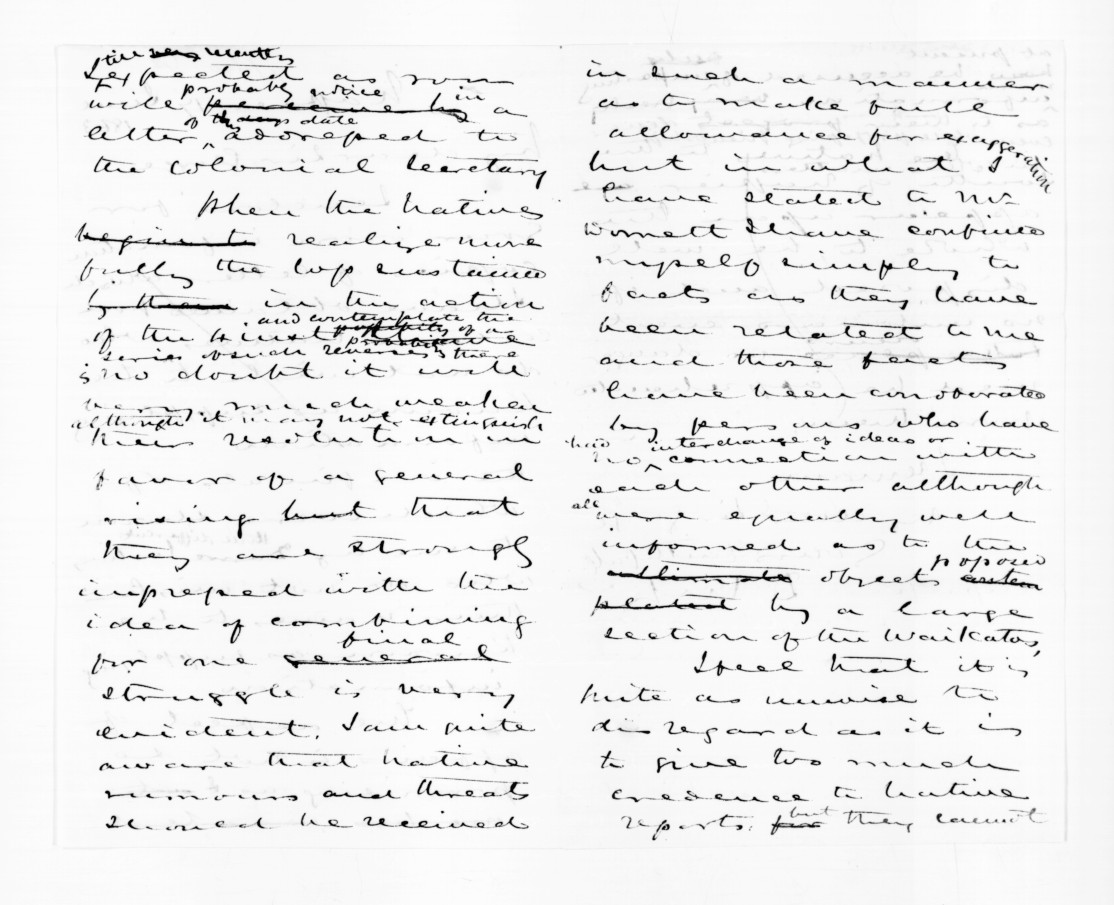 till very recently
expected as you
will probably notice in a
letter of this days date addressed to
the Colonial Secretary
When the Natives
begin to realize more
fully the loss sustained
by them in the action
of the and contemplate the
probability of a
series of such reverses there
is no doubt it will
very much weaken
although it may not extinguish
their resolution in
favor of a general
rising but that
they are strongly
impressed with the
idea of combining
final
for one general
struggle is very
evident. I am quite
aware that native
rumours and threats
should be received
in such a manner
as to make full
allowance for exaggeration
but in what I
have stated to Mr
I have confined
myself simply to
facts as they have
been related to me
and those facts
have been corroborated
by persons who have
had no interchange of ideas or
connection with
each other although
all were equally well
informed as to the
ultimate objects proposed
by a large
section of the Waikatos,
I feel that it is
quite as unwise to
disregard as it is
to give too much
credence to native
reports. for but they cannot